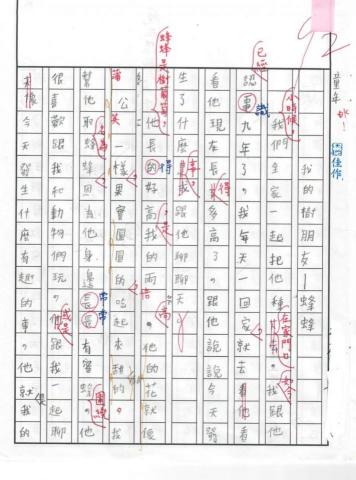 92
童年
佳作
我的樹朋友—蜂蜂
小時候，
我們全家一起把他種
在家門口
我跟他
已經
認識九年了我每天一回家就去看他
看他現在長得多高了。跟他說說今天發
生了什麼事或跟他聊聊天
蜂蜂是樹葡萄
他長的得好高是我的兩倍高。他的花就像
蒲公英一樣果實圓圓的起來甜甜的。我
幫他取
名為
蜂因為他身邊長長常常有蜜蜂
圍繞
他
很喜歡我和動物們玩。
或是
他跟我一起聊
天像今天發生什麼有趣的事。他就是我的